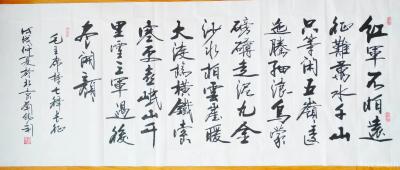 紅軍不怕遠
征難萬水千山
只等闲五嶺逶
迤騰細浪烏蒙
磅礴走泥丸金
沙水拍雲崖暖
大渡橋橫鐵索
寒更喜岷山千
里雪三軍過後
尽開顔
毛主席詩七律長征
仲夏於北京